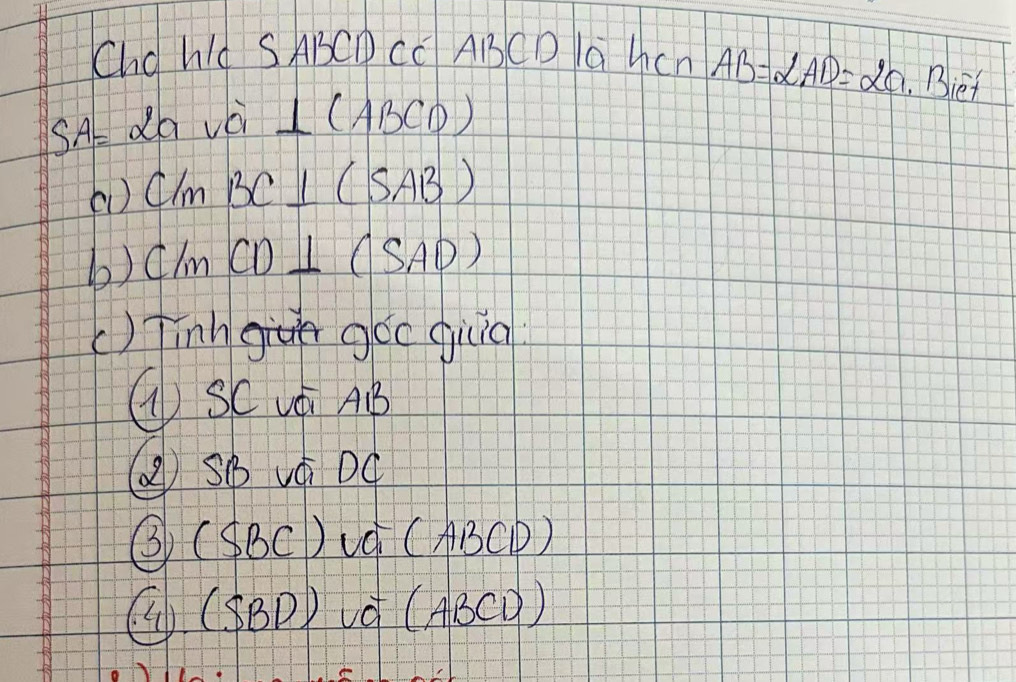 Cho h/c SABCD có ABCD là hcn AB=2AD=2a. Biết
SA= 2a và ⊥ (ABCD)
a) C/m BC ⊥ (SAB)
b) C/m CD ⊥ (SAD)
c) Tính giữa góc giữa:
① SC và AB
② SB và DC
③ (SBC) và (ABCD)
④. (SBD) và (ABCD)